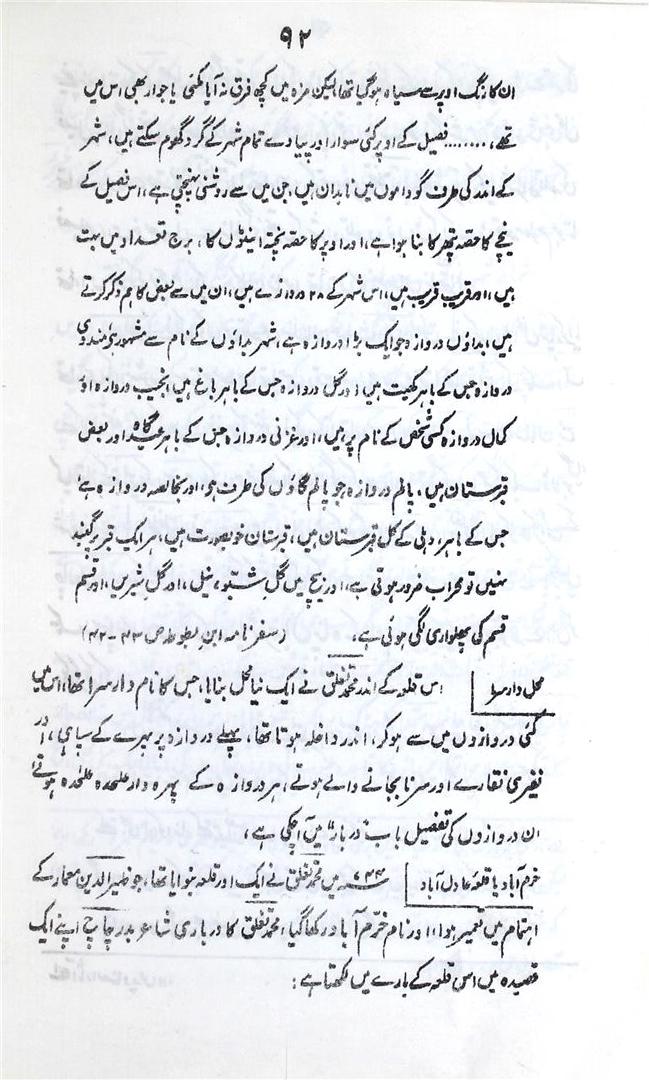 ۹۲
ان کا رنگ اوپر سے سیاہ ہوگیا تھا، لیکن مزہ میں کچھ فرق نہ آیا مکئی یا جوار بھی اس میں
تھے، ........ فصیل کے اوپر کئی سوار اور پیادے تمام شہر کے گرد گھوم سکتے ہیں، شہر
کے اندر کی طرف گوداموں میں تابدان ہیں، جن میں سے روشنی پہنچتی ہے، اس فصیل کے
نیچے کا حصہ پتھر کا بنا ہوا ہے، اور اوپر کا حصہ پختہ اینٹوں کا، برج تعداد میں بہت
ہیں، اور قریب قریب ہیں، اس شہر کے ۲۸ دروازے ہیں، ان میں سے بعض کا ہم ذکر کرتے
ہیں، بداؤں دروازہ جو ایک بڑا دروازہ ہے، شہر بداؤں کے نام سے مشہور ہے، مندوی
دروازہ جس کے باہر کھیت ہیں اور گل دروازہ جس کے باہر باغ ہیں، نجیب دروازہ اور
کمال دروازہ کسی شخص کے نام پر ہیں، اور غزنی دروازہ جس کے باہر عیدگاہ اور بعض
قبرستان ہیں، پالم دروازہ جو پالم گاؤں کی طرف ہے، اور بجالصہ دروازہ ہے
جس کے باہر، دہلی کے کل قبرستان ہیں، قبرستان خوبصورت ہیں، ہر ایک قبر پر گنبد
نہیں تو محراب ضرور ہوتی ہے، اور بیچ میں گل شبو، بیل، اور گل نسریں، اور قسم
قسم کی پھلواری لگی ہوئی ہے، (سفر نامہ ابن بطوطہ ص ۴۳-۴۲)
محل دار سرا اس قلعہ کے اندر محمد تغلق نے ایک نیا محل بنایا، جس کا نام دار سرا تھا، اس میں
کئی دروازوں میں سے ہو کر، اندر داخلہ ہوتا تھا، پہلے دروازہ پر پہرے کے سپاہی، اور
نفیری نقارے اور سرنا بجانے والے ہوتے، ہر دروازہ کے پہرہ دار علیحدہ علیحدہ ہوتے
ان دروازوں کی تفصیل باب "دربار" میں آچکی ہے،
خرم آباد یا قلعہ عادل آباد میں محمد تغلق نے ایک اور قلعہ بنوایا تھا، جو ظہیر الدین معمار کے
اہتمام میں تعمیر ہوا، اور نام خرم آباد رکھا گیا، محمد تغلق کا درباری شاعر بدر چاچ اپنے ایک
قصیدہ میں اس قلعہ کے بارے میں لکھتا ہے: